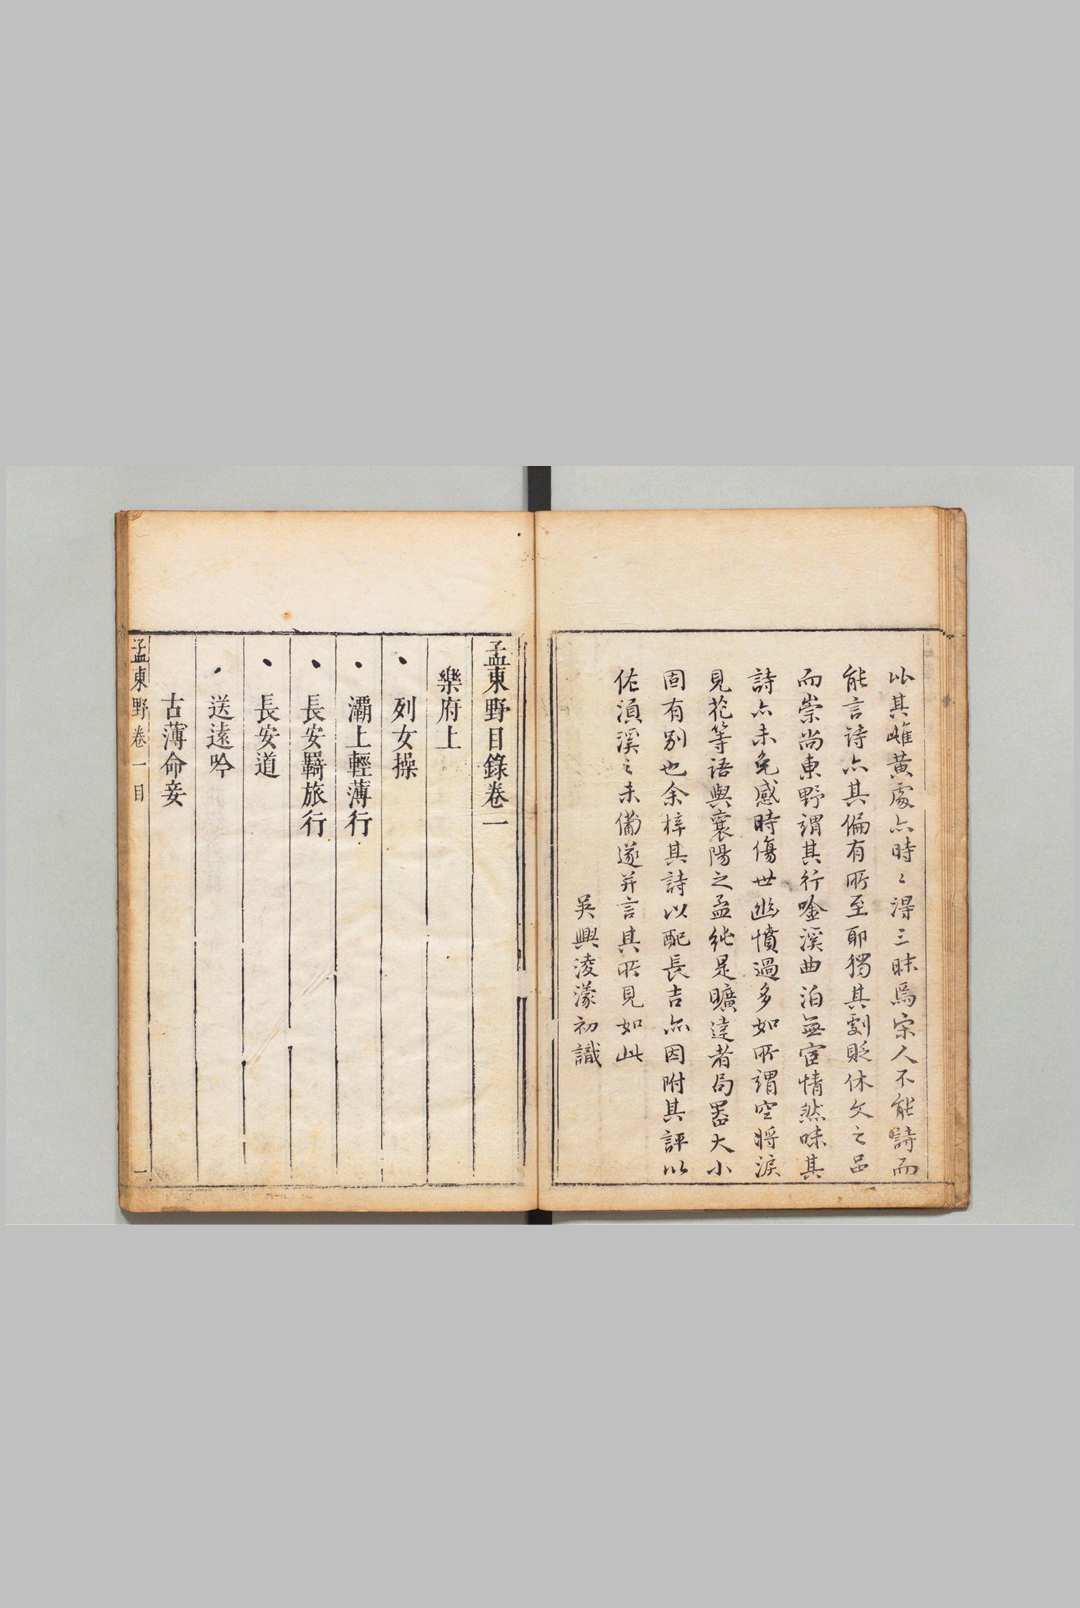 以其雌黃處亦時〻得三昧焉宋人不能詩而
能言詩亦其偏有所至耶獨其劌貶休文之品
而崇尚東野謂其行唫溪曲泊無宦情然味其
詩亦未免感時傷世幽憤過多如所謂空將淚
見花等語與襄陽之孟純是曠達者局器大小
固有別也余梓其詩以配長吉亦因附其評以
佐湏溪之未備遂并言其所見如此
吳興淩濛初識
孟東野目錄卷一
樂府上
列女操
灞上輕薄行
長安羇旅行
長安道
送遠吟
古薄命妾
孟東野卷一目
一